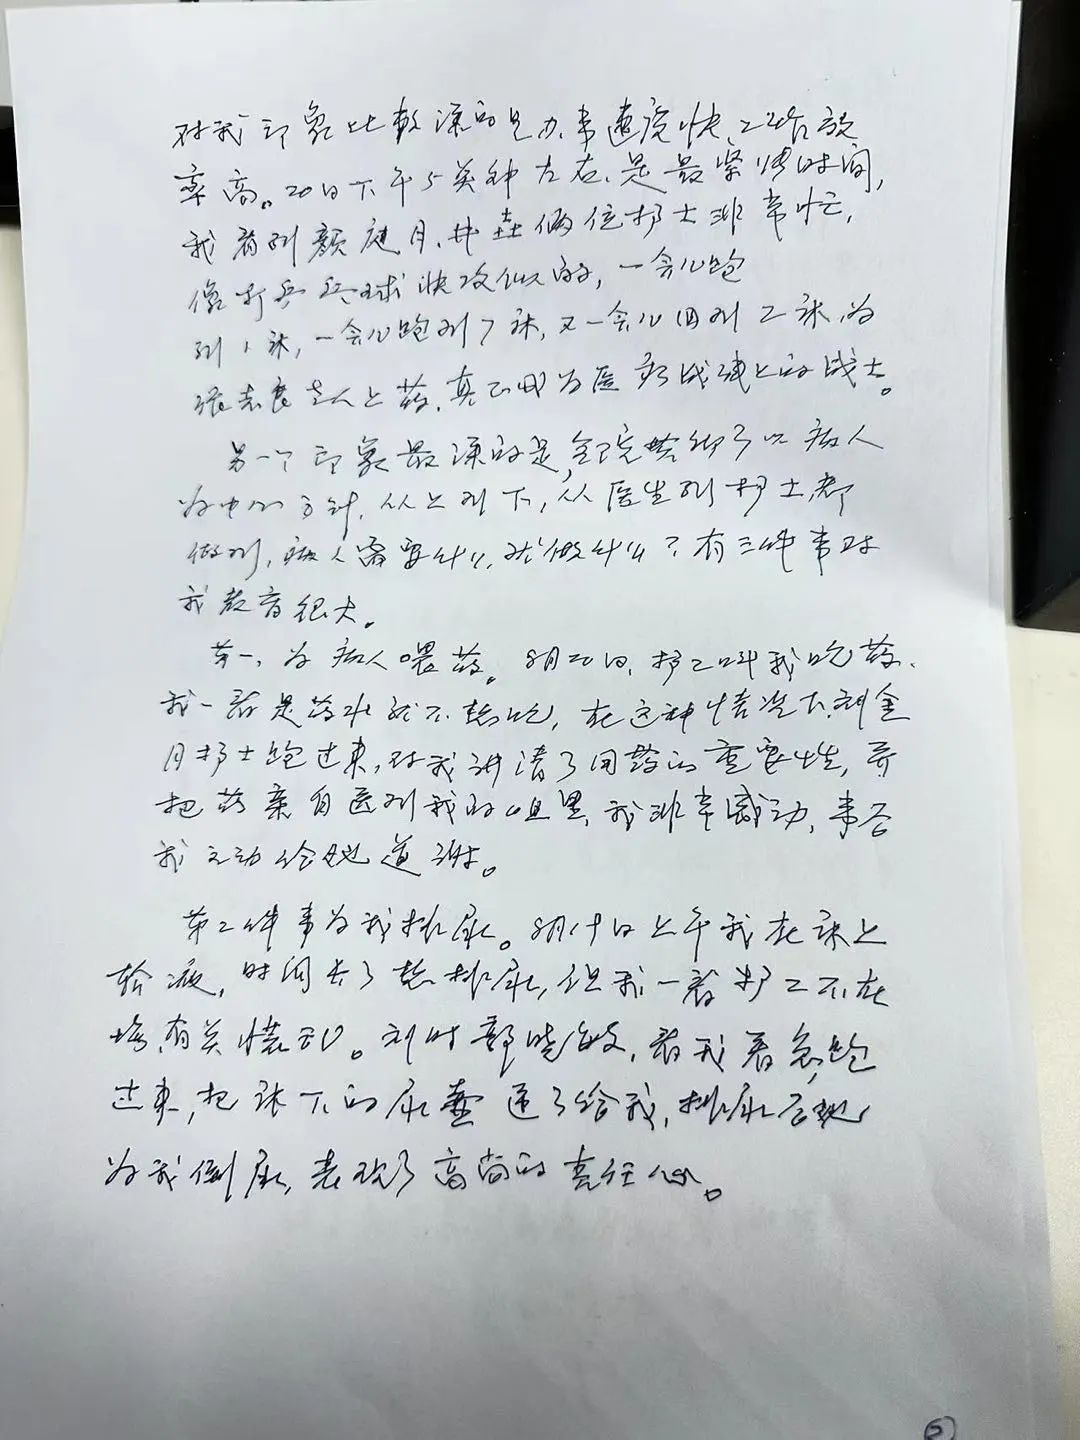 对我印象比较深的是办事速度快、工作效
率高。20日下午5点钟左右，是最紧张时间，
我看到颜建月、井垚俩位护士非常忙，
像打乒乓球快攻似的，一会儿跑
到1床，一会儿跑到7床，又一会儿回到2床，为
张志良老人上药，真正成为医疗战线上的战士。
另一个印象最深的是，全院贯彻了以病人
为中心方针，从上到下，从医生到护士，都
做到，病人需要什么，就做什么？有三件事对
我教育很大。
第一，为病人喂药。8月20日，护工叫我吃药、
我一看是药水就不想吃，在这种情况下，刘金
月护士跑过来，对我讲清了用药的重要性，并
把药亲自送到我的咀里，我非常感动，事后
我主动给她道谢。
第二件事为我排尿。8月19日上午我在床上
输液，时间长了想排尿，但我一看护工不在
场，有关情况。刘时郭晓敏，看我着急，跑
过来，把床下的尿壶递了给我，排尿后她
为我倒尿，表现了高尚的责任心。
5